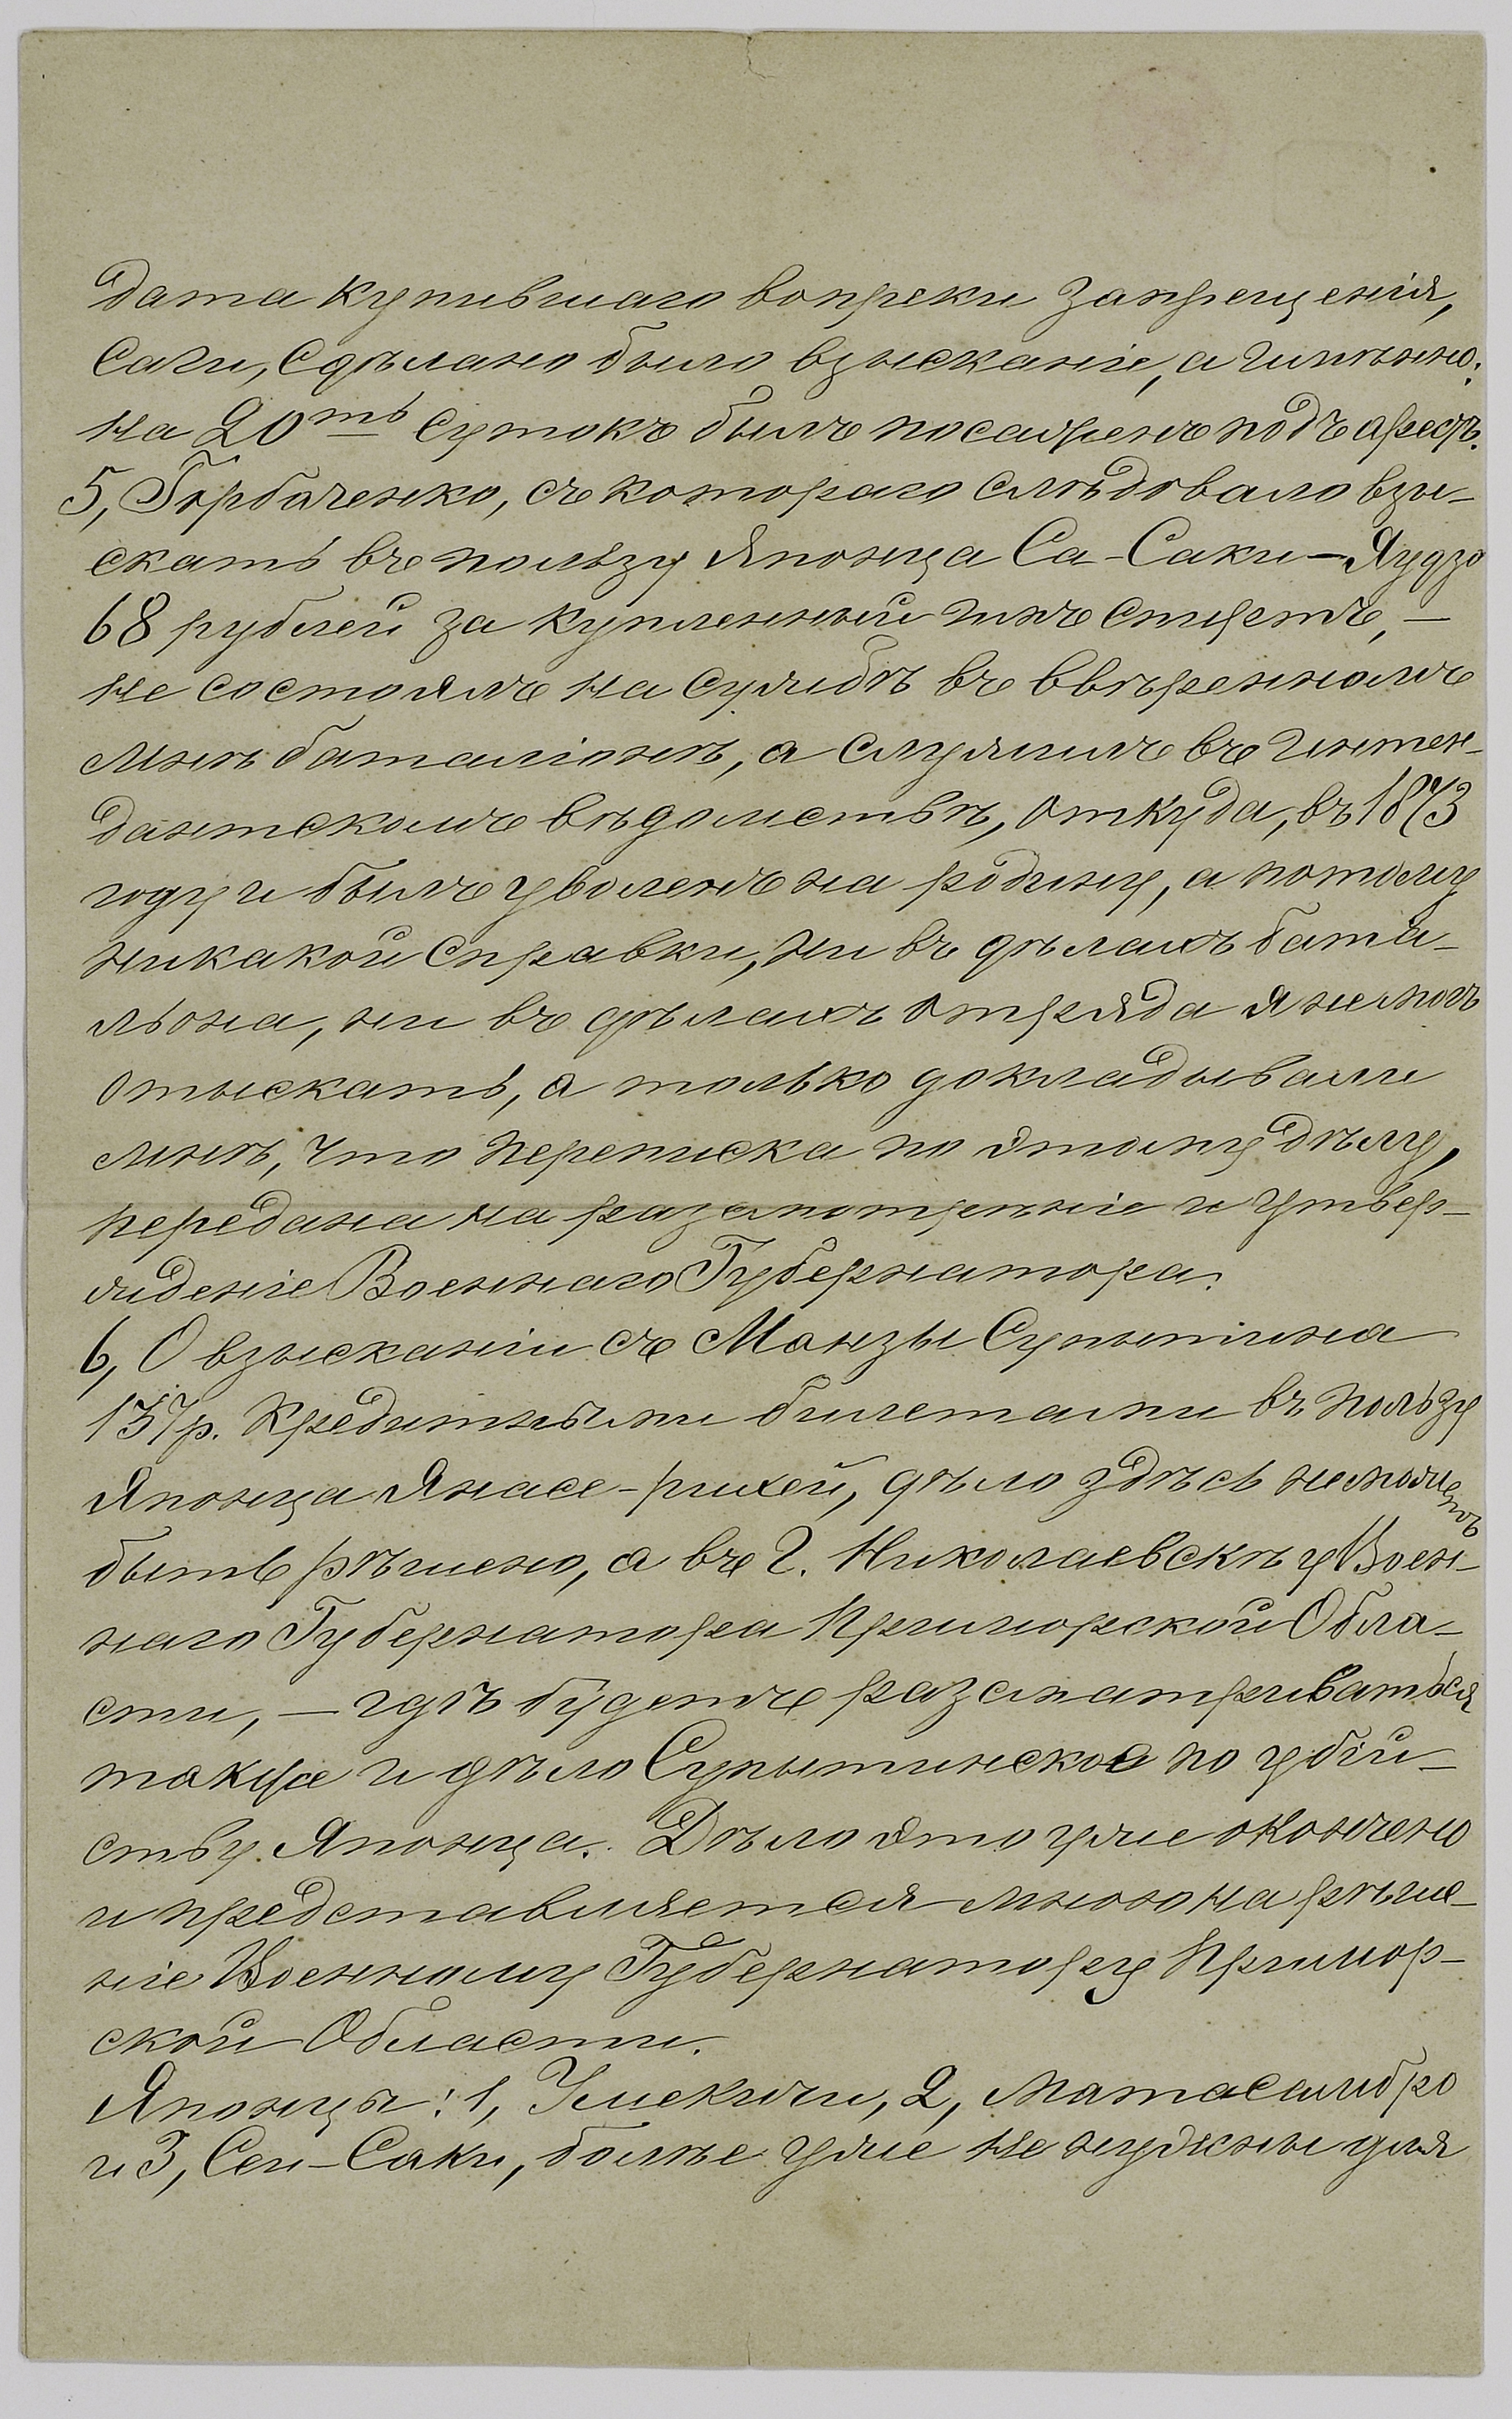 дата купившаго вопреки запрещенія,
саки, сдѣлано было взысканіе, а именно:
на 20ть сутокъ былъ посаженъ подъ арестъ.
5, Горбаченко, съ котораго слѣдовало взы-
скать въ пользу Японца Са-Саки-Яудзо
68 рублей за купленный имъ спиртъ, —
не состоялъ на службѣ въ ввѣренномъ
мнѣ баталіонѣ, а служилъ въ Интен-
дантскомъ вѣдомствѣ, откуда, въ 1873
году и былъ уволенъ на родину, а потому
никакой справки, ни въ дѣлахъ бата-
льона, ни въ дѣлахъ отряда я не могъ
отыскать, а только докладывали
мнѣ, что переписка по этому дѣлу,
передана на разсмотреніе и утвер-
жденіе Военнаго Губернатора.
6, О взысканіи съ Манзы Супытина
137 р. кредитными билетами въ пользу
Японца Янасе-рихей, дѣло здѣсь не можетъ
быть рѣшено, а въ г. Николаевскѣ у Воен-
наго Губернатора Приморской Обла-
сти, — гдѣ будетъ разсматриваться
также и дѣло Супытинское по убій-
ству Японца. Дѣло это уже окончено
и представляется мною на рѣше-
ніе Военному Губернатору Примор-
ской Области.
Японцы: 1, Умекичи, 2, Матасабро
и 3, Сен-Саки, болѣе уже не нужны для